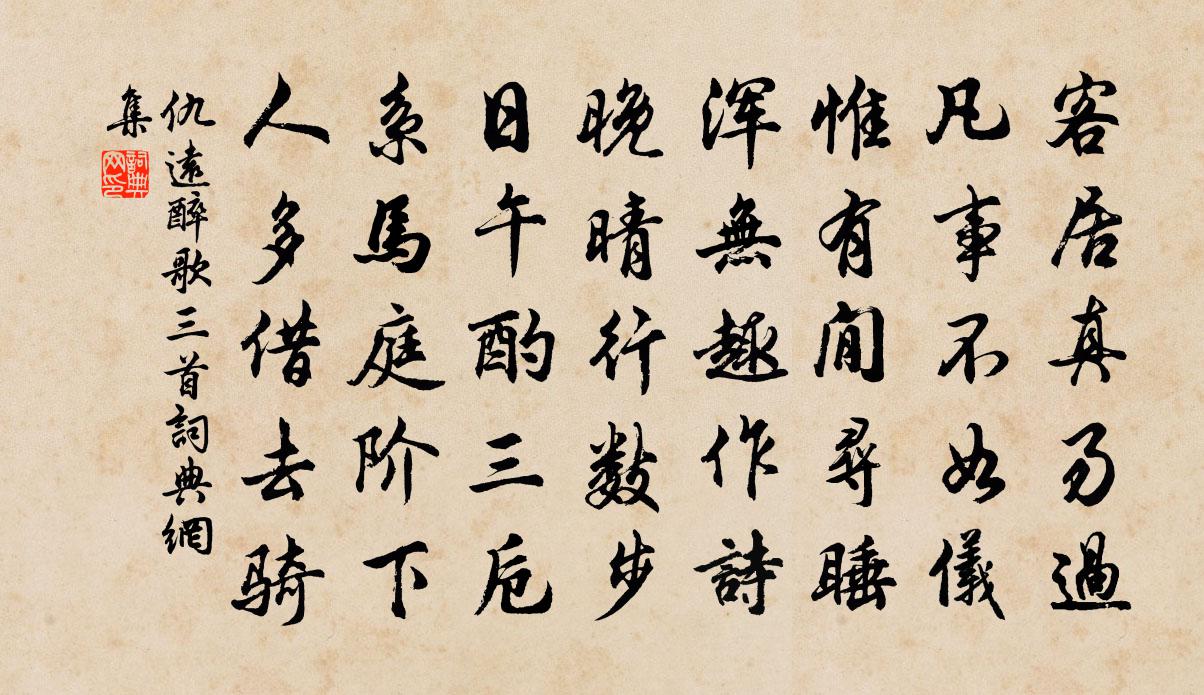 客居真易過
凡事不如儀
惟有閒尋睡
浑無趣作詩
晚晴行数步
日午酌三卮
系馬庭阶下
人多借去骑
仇遠醉歌三首詞典網
集
詞典网印